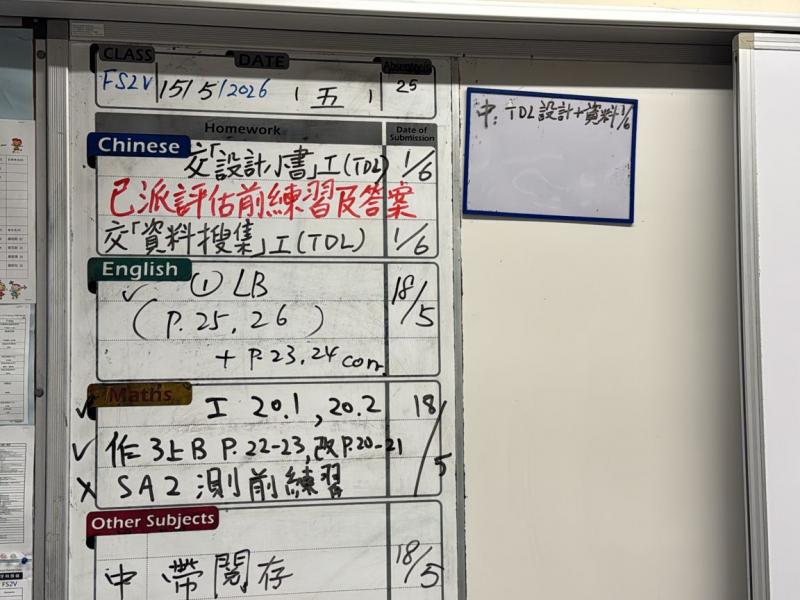 CLASS DATE
FS2V 15/5/2026 (五) 25
Homework Date of Submission
Chinese 交「設計小書」工(TDL) 1/6
已派評估前練習及答案
交「資料搜集」工(TDL) 1/6
English ✓ ① LB 18/5
(P.25, 26)
+ P.23, 24 corr.
Maths ✓ 工 20.1, 20.2 18/5
✓ 作 3上B P.22-23, 改P.20-21
X SA2 測前練習
Other Subjects
中 帶閱存 18/5
中: TDL 設計+資料 1/6
FS2V